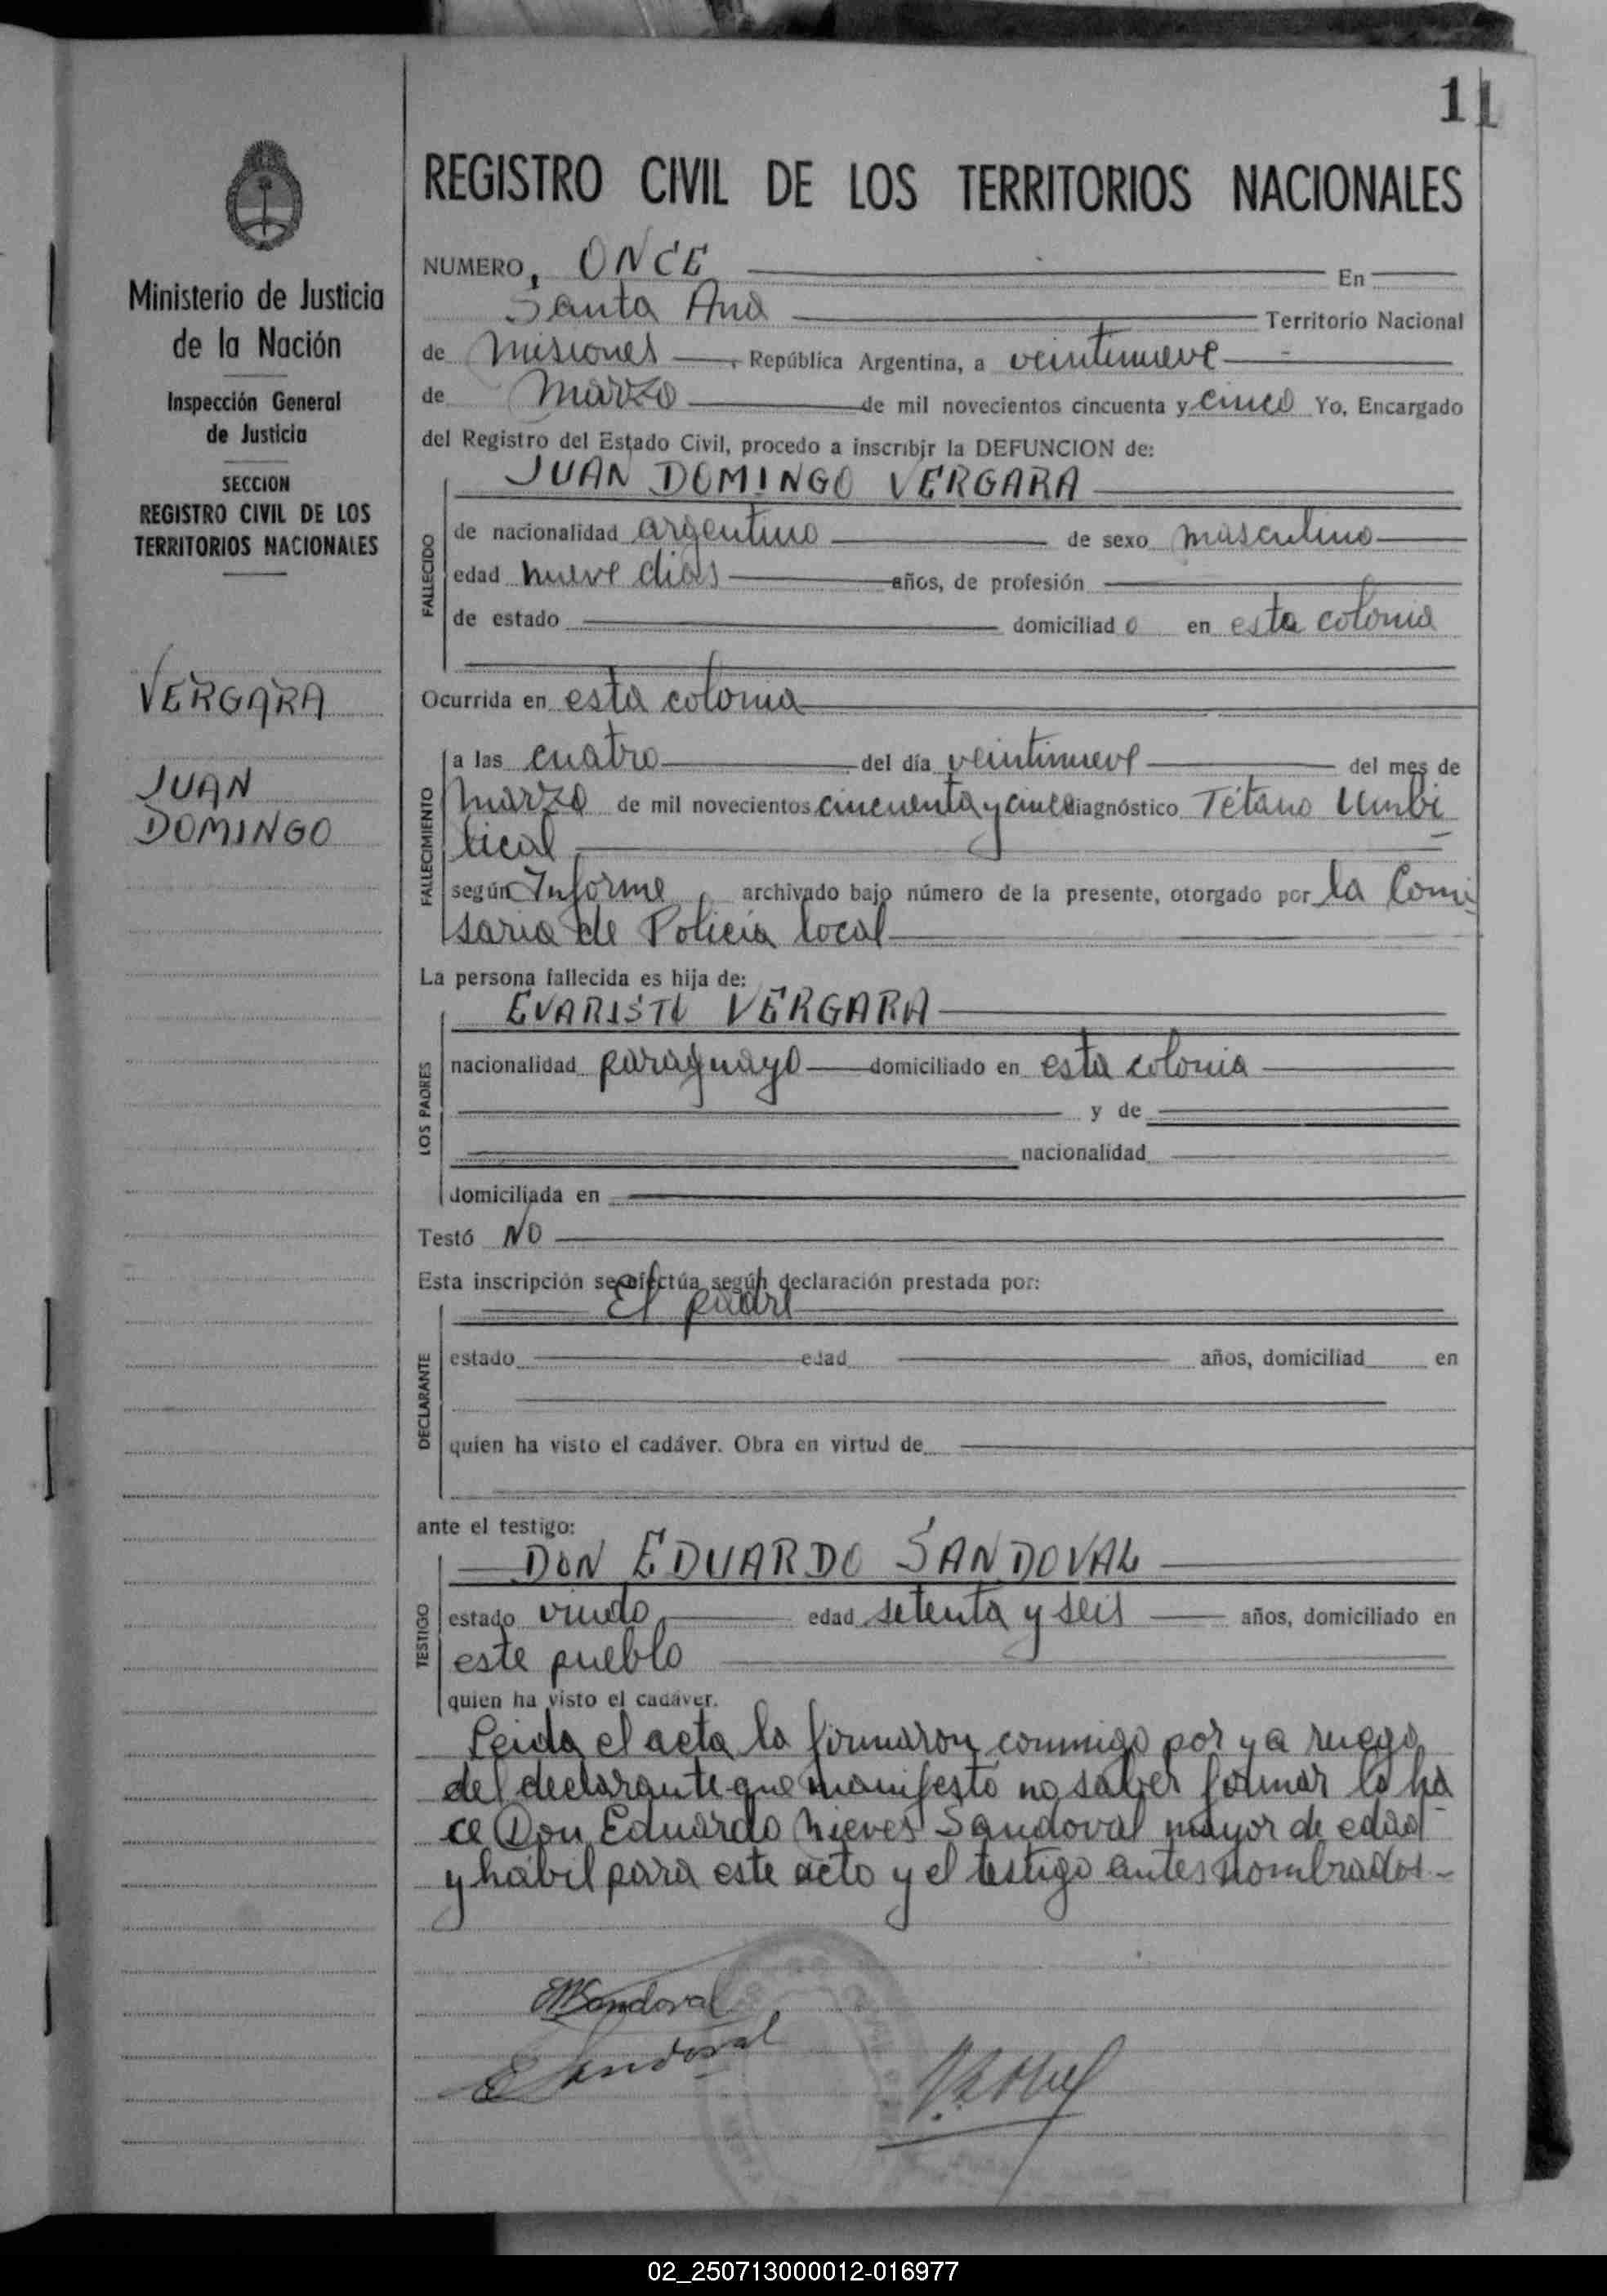 11
Ministerio de Justicia
de la Nación
Inspección General
de Justicia
SECCION
REGISTRO CIVIL DE LOS
TERRITORIOS NACIONALES
VERGARA
JUAN
DOMINGO
REGISTRO CIVIL DE LOS TERRITORIOS NACIONALES
NUMERO, ONCE En
Santa Ana Territorio Nacional
de Misiones, República Argentina, a veintinueve
de Marzo de mil novecientos cincuenta y cinco Yo, Encargado
del Registro del Estado Civil, procedo a inscribir la DEFUNCION de:
JUAN DOMINGO VERGARA
FALLECIDO
de nacionalidad argentino de sexo masculino
edad nueve dias años, de profesión
de estado domiciliado en esta colonia
Ocurrida en esta colonia
FALLECIMIENTO
a las cuatro del día veintinueve del mes de
Marzo de mil novecientos cincuenta y cinco diagnóstico Tétano Umbi
lical
según Informe archivado bajo número de la presente, otorgado por la Comi
saria de Policía local
La persona fallecida es hija de:
EVARISTO VERGARA
LOS PADRES
nacionalidad paraguayo domiciliado en esta colonia
y de
nacionalidad
domiciliada en
Testó NO
Esta inscripción se efectúa según declaración prestada por:
El padre
DECLARANTE
estado edad años, domiciliad en
quien ha visto el cadáver. Obra en virtud de
ante el testigo:
DON EDUARDO SANDOVAL
TESTIGO
estado viudo edad setenta y seis años, domiciliado en
este pueblo
quien ha visto el cadáver.
Leida el acta la firmaron conmigo por y a ruego
del declarante que manifestó no saber firmar lo ha
ce Don Eduardo Nieves Sandoval mayor de edad
y hábil para este acto y el testigo antes nombrados-
ENSandoval
E Sandoval
02_250713000012-016977